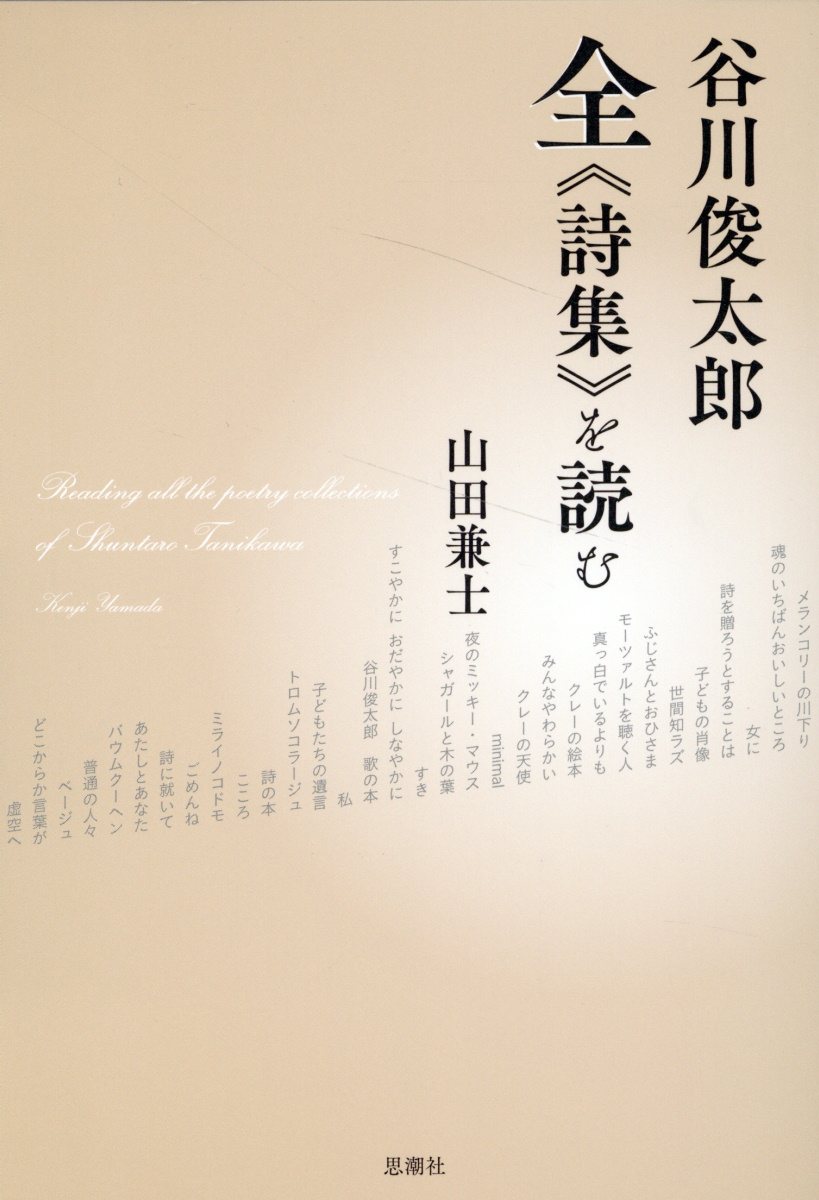 谷川俊太郎
全《詩集》を読む
山田兼士
Reading all the poetry collections
of Shuntaro Tanikawa
Kenji Yamada
メランコリーの川下り
魂のいちばんおいしいところ
女に
詩を贈ろうとすることは
子どもの肖像
世間知ラズ
ふじさんとおひさま
モーツァルトを聴く人
真っ白でいるよりも
クレーの絵本
みんなやわらかい
クレーの天使
minimal
夜のミッキー・マウス
シャガールと木の葉
すき
すこやかに おだやかに しなやかに
谷川俊太郎 歌の本
私
子どもたちの遺言
トロムソコラージュ
詩の本
こころ
ミライノコドモ
ごめんね
詩に就いて
あたしとあなた
バウムクーヘン
普通の人々
ベージュ
どこからか言葉が
虚空へ
思潮社